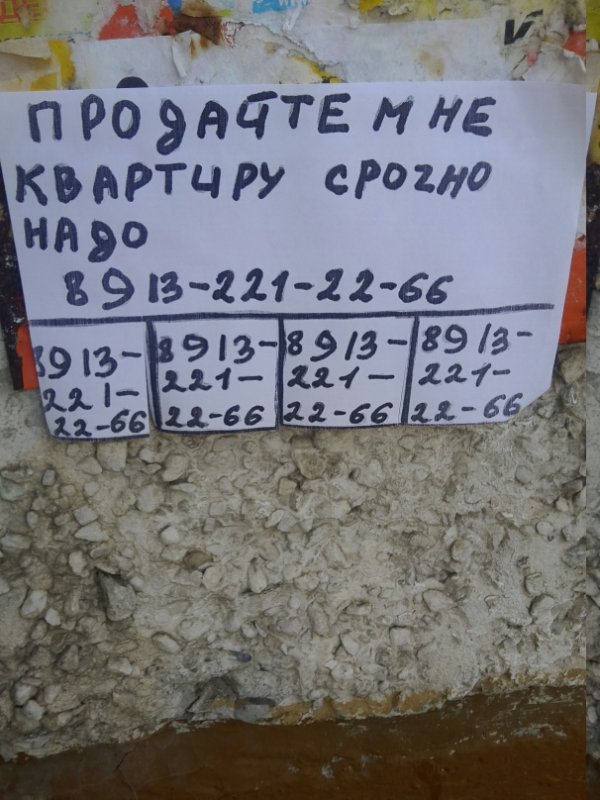 ПРОДАЙТЕ МНЕ
КВАРТИРУ СРОЧНО
НАДО
8913-221-22-66
8913-
221-
22-66
8913-
221-
22-66
8913-
221-
22-66
8913-
221-
22-66